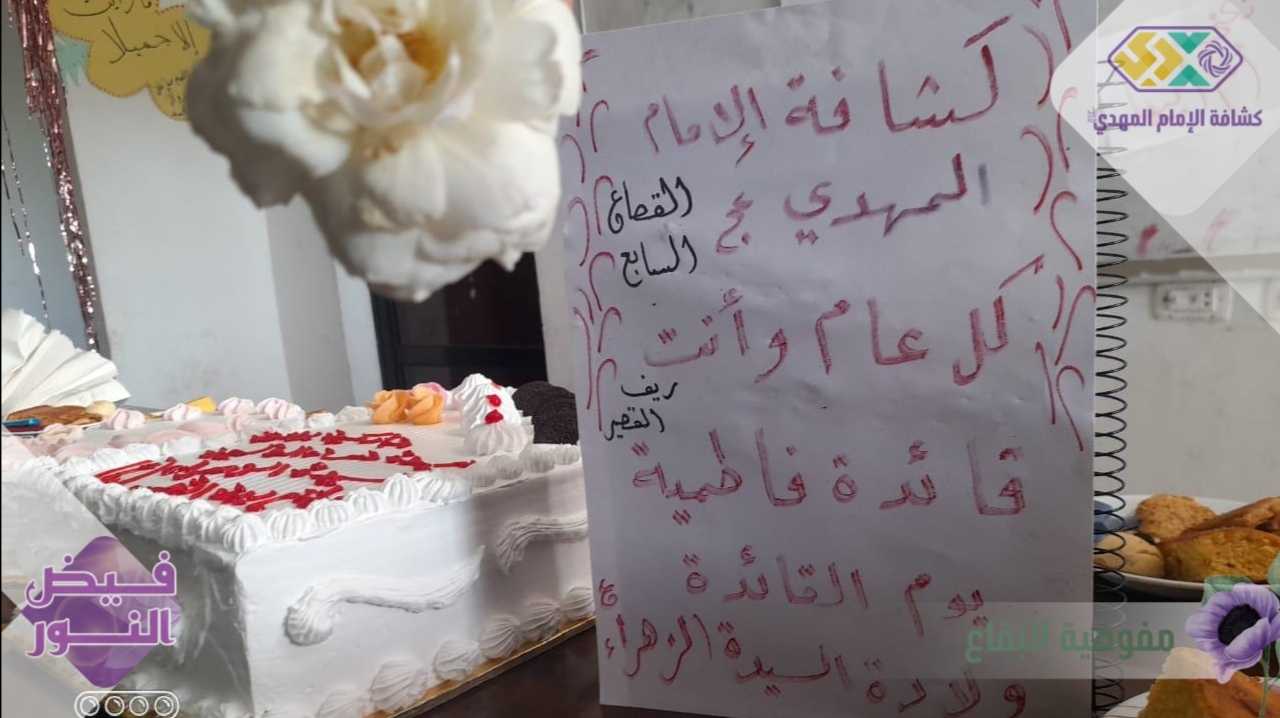 كشافة الإمام
المهدي عج
القطاع
السابع
كل عام وأنت
ريف
القصير
قائدة فاطمية
يوم القائدة
ولادة السيدة الزهراء ع
كشافة الإمام المهدي
فيض
النور
مفوضية البقاع
إلا جميلا